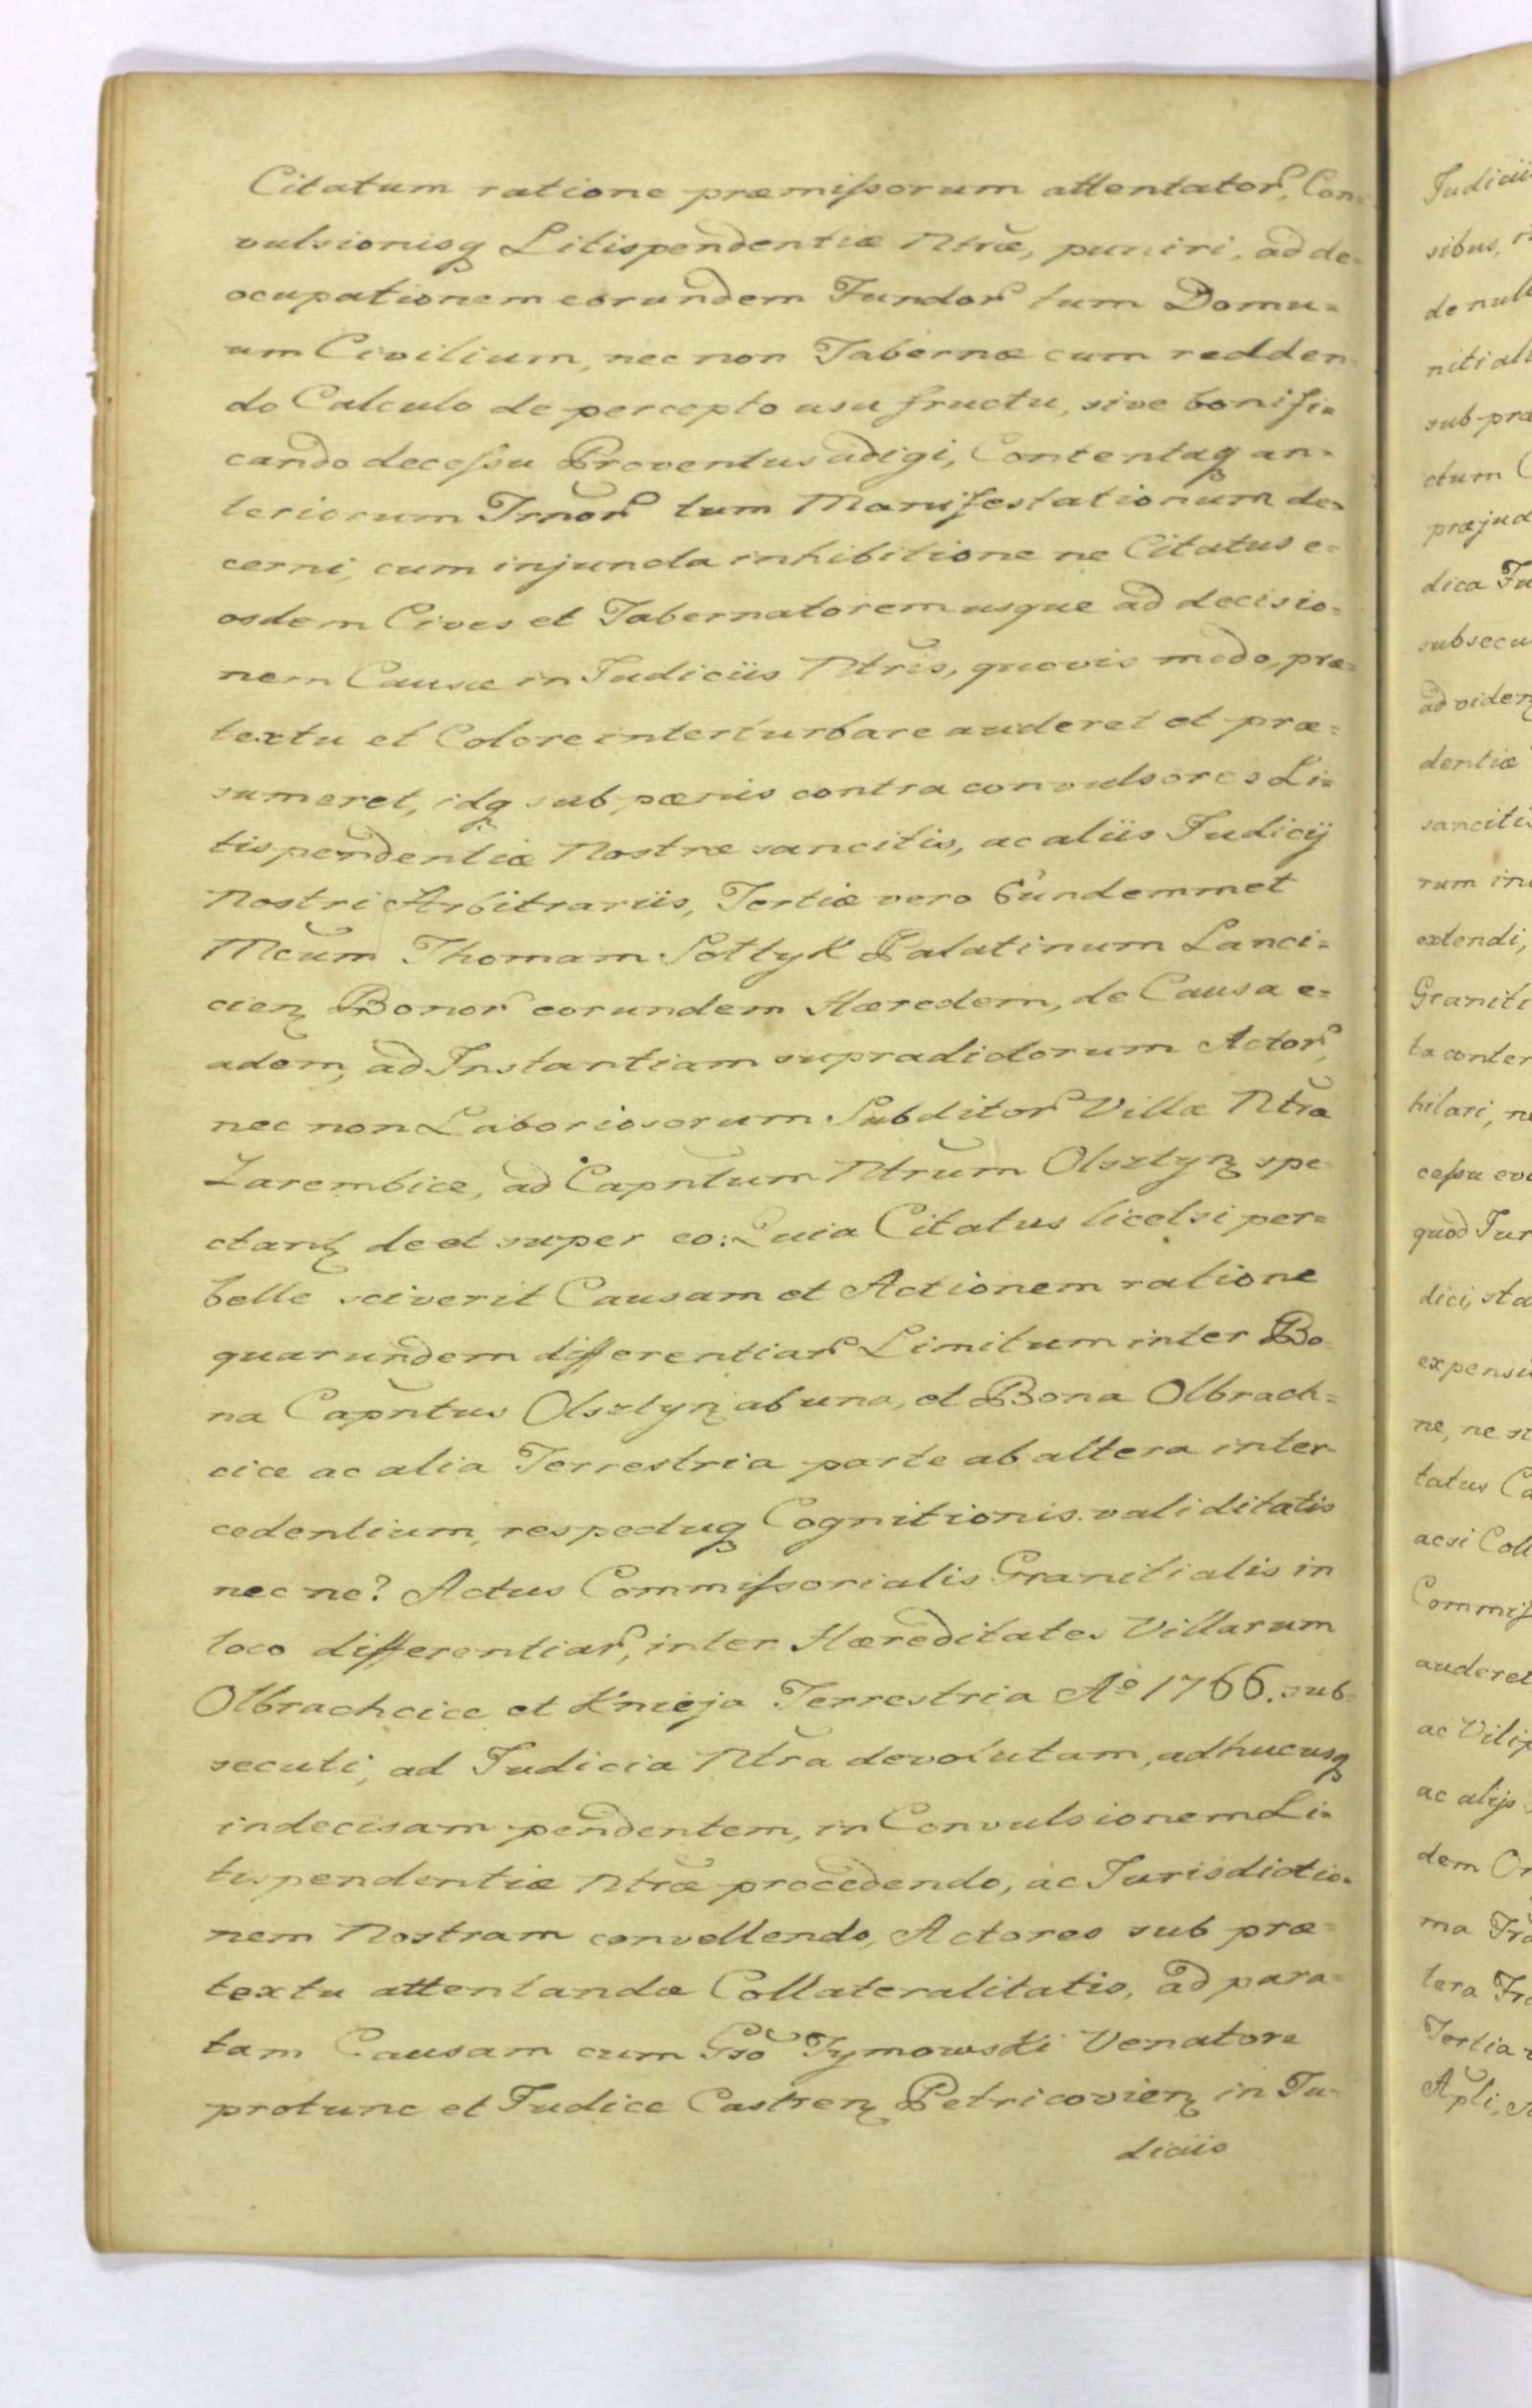 Citatum ratione præmissorum attentator, Con=
vulsionisq Litispendentiæ Ntræ, puniri, ad de=
ocupationem eorundem Fundor tum Domu=
um Civilium, nec non Tabernæ cum redden
do Calculo de percepto usu fructu, sive bonifi=
cando decessu Proventus adigi, Contentaq an=
teriorum Trnor tum Manifestationum de=
cerni, cum injuncta inhibitione ne Citatus e=
osdem Cives et Tabernatorem usque ad decisio=
nem Causæ in Judiciis Ntris, quovis modo, præ=
textu et Colore interturbare auderet et præ=
sumeret, idq sub pœnis contra convulsores Li=
tispendentiæ Nostræ sancitis, ac aliis Judicij
Nostri Arbitrariis, Tertiæ vero Eundemmet
Mcum Thomam Sottyk Palatinum Lanci=
cien Bonor eorundem Hæredem, de Causa e=
adem, ad Instantiam supradictorum Actor,
nec non Laboriosorum Subditor Villæ Ntra
Zarembice, ad Capntum Ntrum Olsztyn spe
ctan de et super eo: Quia Citatus licet si per=
belle sciverit Causam et Actionem ratione
quarundem differentiar Limitum inter Bo
na Capntus Olsztyn ab una, et Bona Olbrach=
cice ac alia Terrestria parte ab altera inter
cedentium, respectuq Cognitionis validitatis
nec ne? Actus Commissorialis Granitialis in
loco differentiar, inter Hæreditates Villarum
Olbrachcice et Knieja Terrestria Aº 1766. sub=
secuti, ad Judicia Ntra devolutam, adhucusq
indecisam pendentem, in Convulsionem Li=
tispendentiæ Ntræ procedendo, ac Jurisdictio=
nem Nostram convellendo, Actores sub præ=
textu attentandæ Collateralitatis, ad para=
tam Causam cum Gso Tymowski Venatore
protunc et Judice Castren Petricovien in Ju=
diciis
Judicii
sibus,
de null
niti ali
sub præ
ctum
præjud
dica Fu
subsecu
ad viden
dentiæ
sanciti
rum in
extendi,
Graniti
ta conten
hilari, n
cessu ev
quod Jur
dici, sta
expensi
ne, ne
tatus Ca
acsi Coll
Commis
auderet
ac Vilip
ac alijs
dem Or
ma
tera
Tertia
Apli,